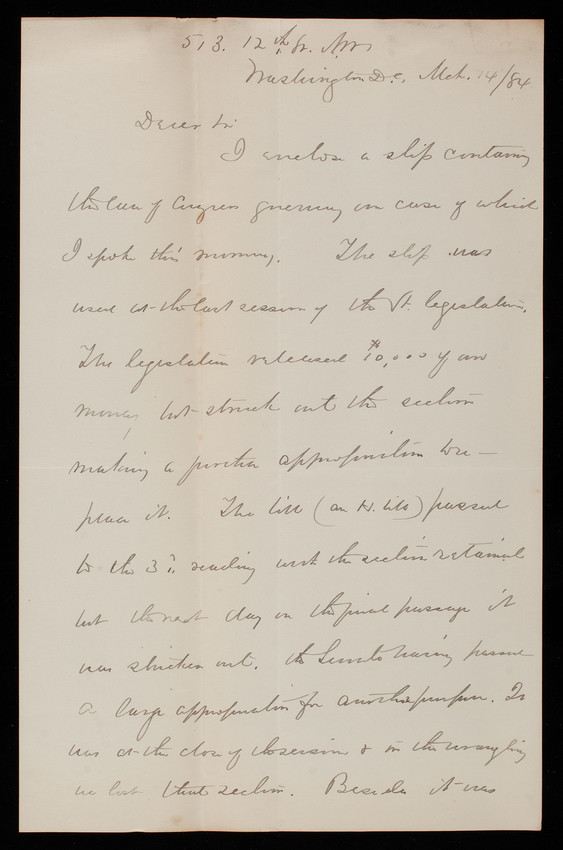 513. 12th St. N.W.
Washington D.C. Mch. 14/84
Dear Sir
I enclose a slip containing
the law of Congress governing our case of which
I spoke this morning. The slip was
used at the last session of the Vt. legislature.
The legislature released $10,000 of our
money but struck out the section
making a further appropriation to re-
place it. The bill (an H. bill) passed
to the 3d. reading with the section retained
but the next day on the final passage it
was stricken out. the Senate having passed
a large appropriation for another purpose. It
was at the close of the session & in the wrangling
we lost that section. Beside it was